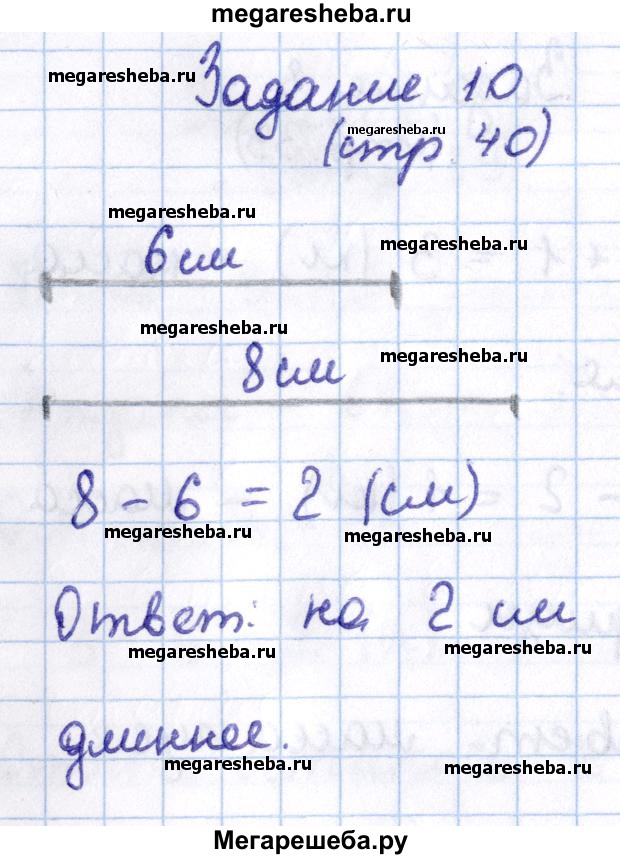 megaresheba.ru
Задание 10
megaresheba.ru
megaresheba.ru
(стр 40)
megaresheba.ru
6 см
megaresheba.ru
megaresheba.ru
megaresheba.ru
8 см
8 - 6 = 2 (см)
megaresheba.ru
megaresheba.ru
Ответ: на 2 см
megaresheba.ru
megaresheba.ru
длиннее.
megaresheba.ru
megaresheba.ru
Мегарешеба.ру